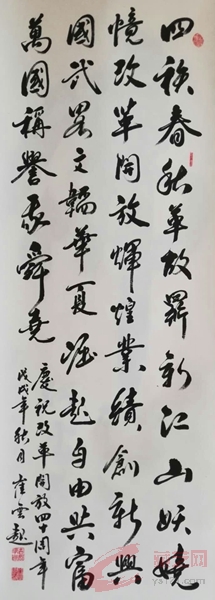 四秩春秋革故鼎新江山妖娆
憶改革開放輝煌業績創新興
國武畧文韜華夏崛起自由共富
萬國稱譽袞舜堯
慶祝改革開放四十周年
戊戌年秋月崔雲起